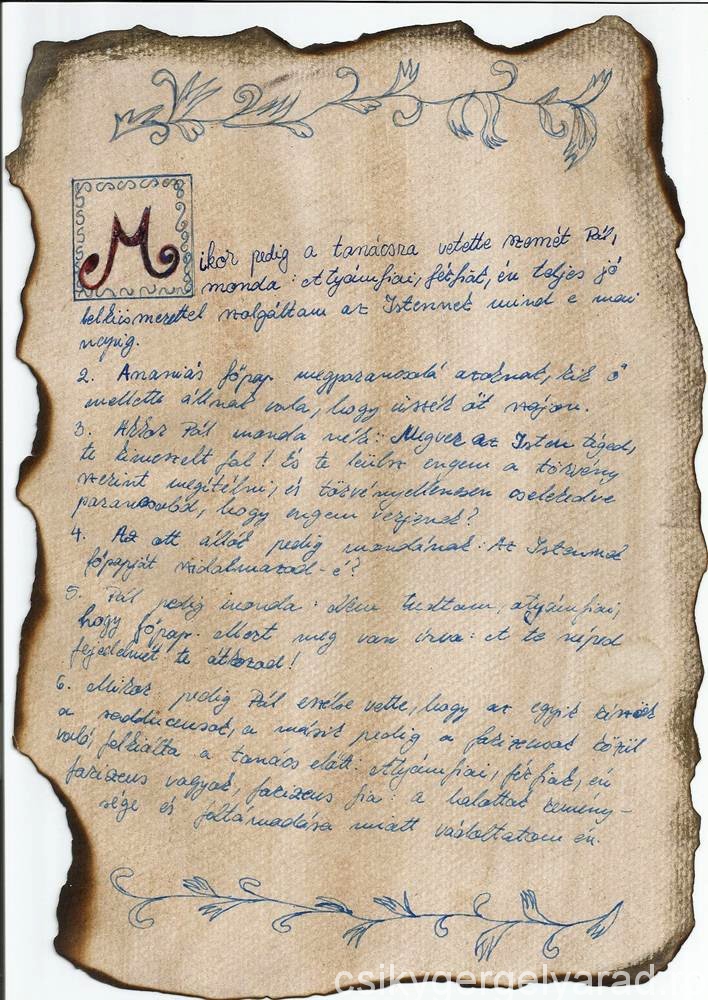 Mikor pedig a tanácsra vetette szemét Pál,
monda: Atyámfiai, férfiak, én teljes jó
lelkiismerettel szolgáltam az Istennek mind e mai
napig.
2. Ananiás főpap megparancsolá azoknak, kik ő
mellette állnak vala, hogy üssék őt szájon.
3. Akkor Pál monda néki: Megver az Isten téged,
te kimeszelt fal! És te leülsz engem a törvény
szerint megítélni, és törvényellenesen cselekedve
parancsolod, hogy engem verjenek?
4. Az ott állók pedig mondának: Az Istennek
főpapját szidalmazod-é?
5. Pál pedig monda: Nem tudtam, atyámfiai,
hogy főpap. Mert meg van írva: A te néped
fejedelmét te átkozad!
6. Mikor pedig Pál eszébe vette, hogy az egyik
a sadduceusok, a másik pedig a farizeusok közül
való, felkiálta a tanács előtt: Atyámfiai, férfiak, én
farizeus vagyok, farizeus fia: a halottak remény-
sége és feltámadása miatt vádoltatom én.
csikygergelyarad